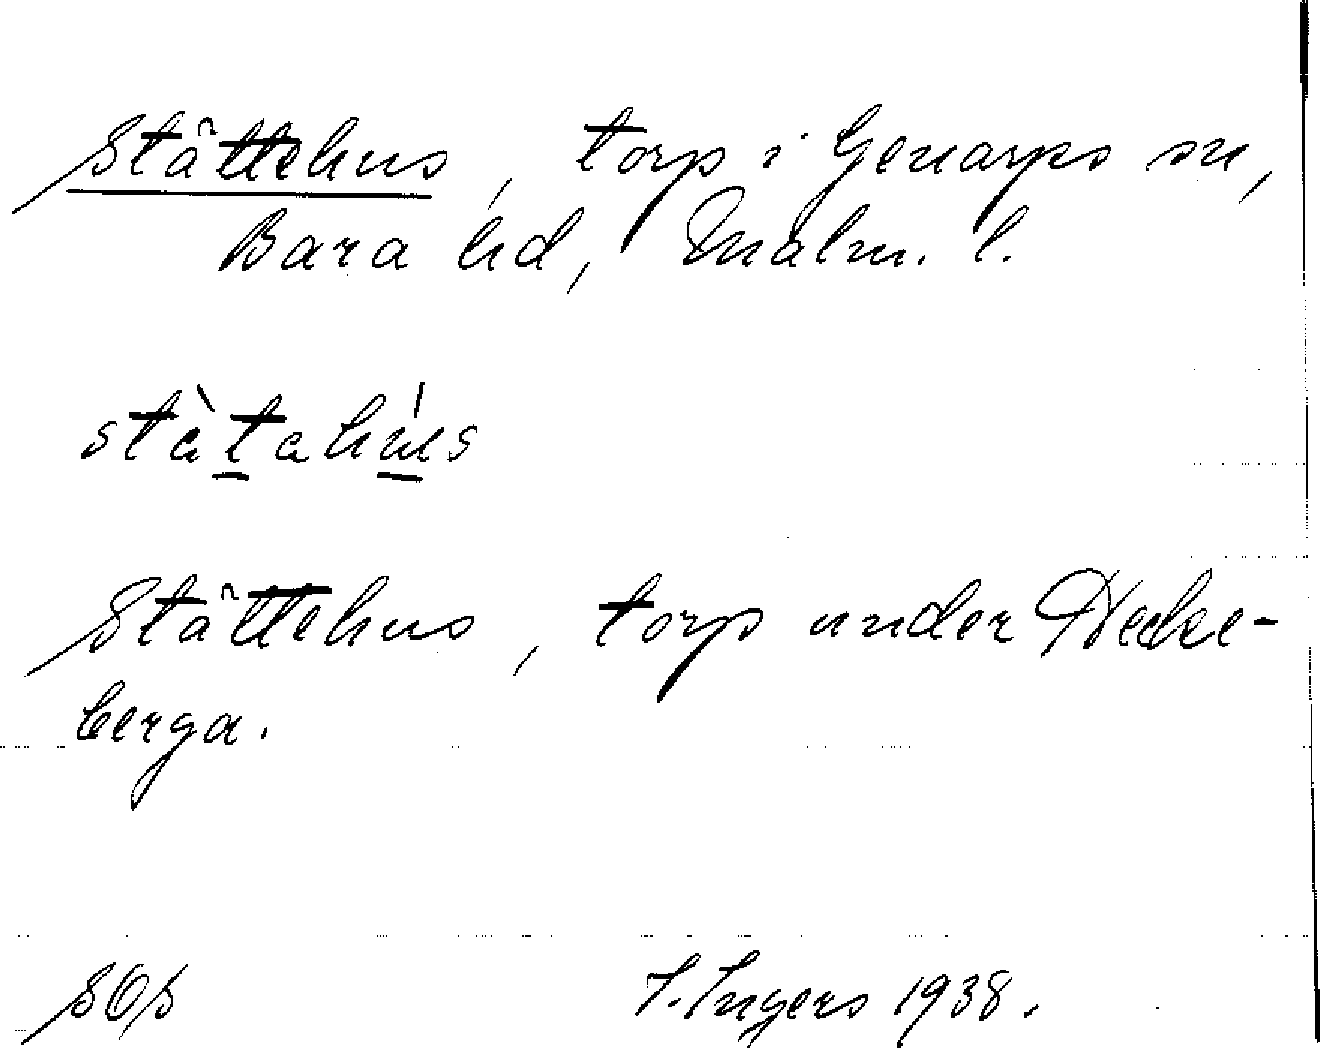 Ståttehus, torp i Genarps sn,
Bara hd, Malm. l.
stàtahús
Ståttehus, torp under Häcke-
berga.
SOS I. Ingers 1938.